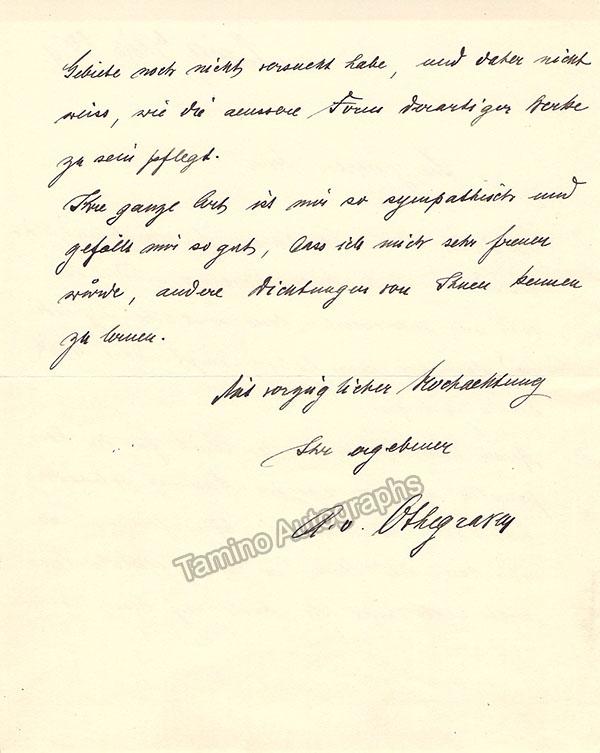 Gebiete noch nicht versucht habe, und daher nicht
weiss, wie die aeussere Form derartiger Werke
zu sein pflegt.
Ihre ganze Art ist mir so sympathisch und
gefällt mir so gut, dass ich mich sehr freuen
würde, andere Dichtungen von Ihnen kennen
zu lernen.
Mit vorzüglicher Hochachtung
Ihr ergebener
A. v. Othegraven
Tamino Autographs